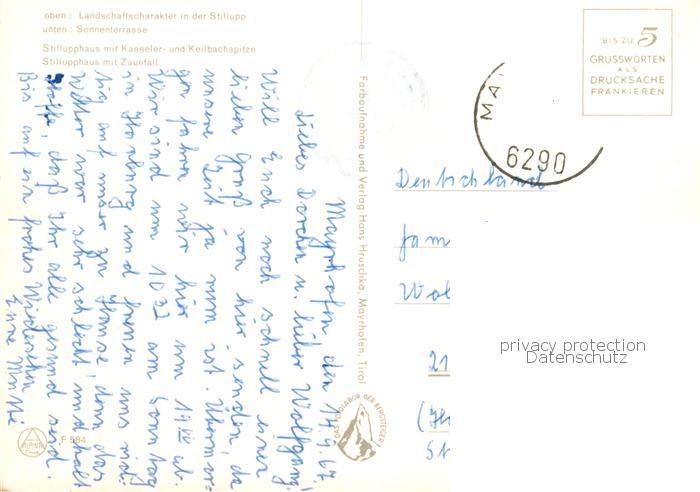 oben: Landschaftscharakter in der Stillupp
unten: Sonnenterrasse
StilluppHaus mit Kasseler- und Keilbachspitze
StilluppHaus mit Zaunfall
BIS ZU 5
GRUSSWORTEN
ALS
DRUCKSACHE
FRANKIEREN
MA
6290
Farbaufnahme und Verlag Hans Hruschka, Mayrhofen, Tirol
Mayrhofen, den 14.9.67.
Liebes Dorchen u. lieber Wolfgang!
Will Euch noch schnell einen
lieben Gruß von hier senden, da
unsere Zeit ja rum ist. Übermor-
gen fahren wir hier um 19 ab.
Wir sind um 10 32 am Sonntag
in Hamburg und freuen uns rie-
sig auf unser zu Hause, denn das
Wetter war sehr schlecht und kalt
Hoffe, daß Ihr alle gesund seid.
Bis auf ein frohes Wiedersehen
Eure
Deutschland
Fam
Wol
21
St
privacy protection
Datenschutz
DAS JUGLABOR DER BERGSTEIGER
ALPINA
F 584